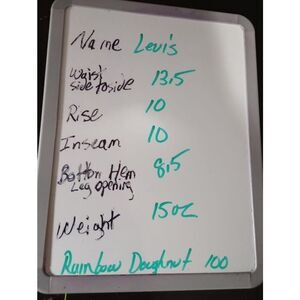 Name Levis
Waist
side to side 13.5
Rise 10
Inseam 10
Bottom Hem 8.5
Leg opening
Weight 15oz
Rainbow Doughnut 100